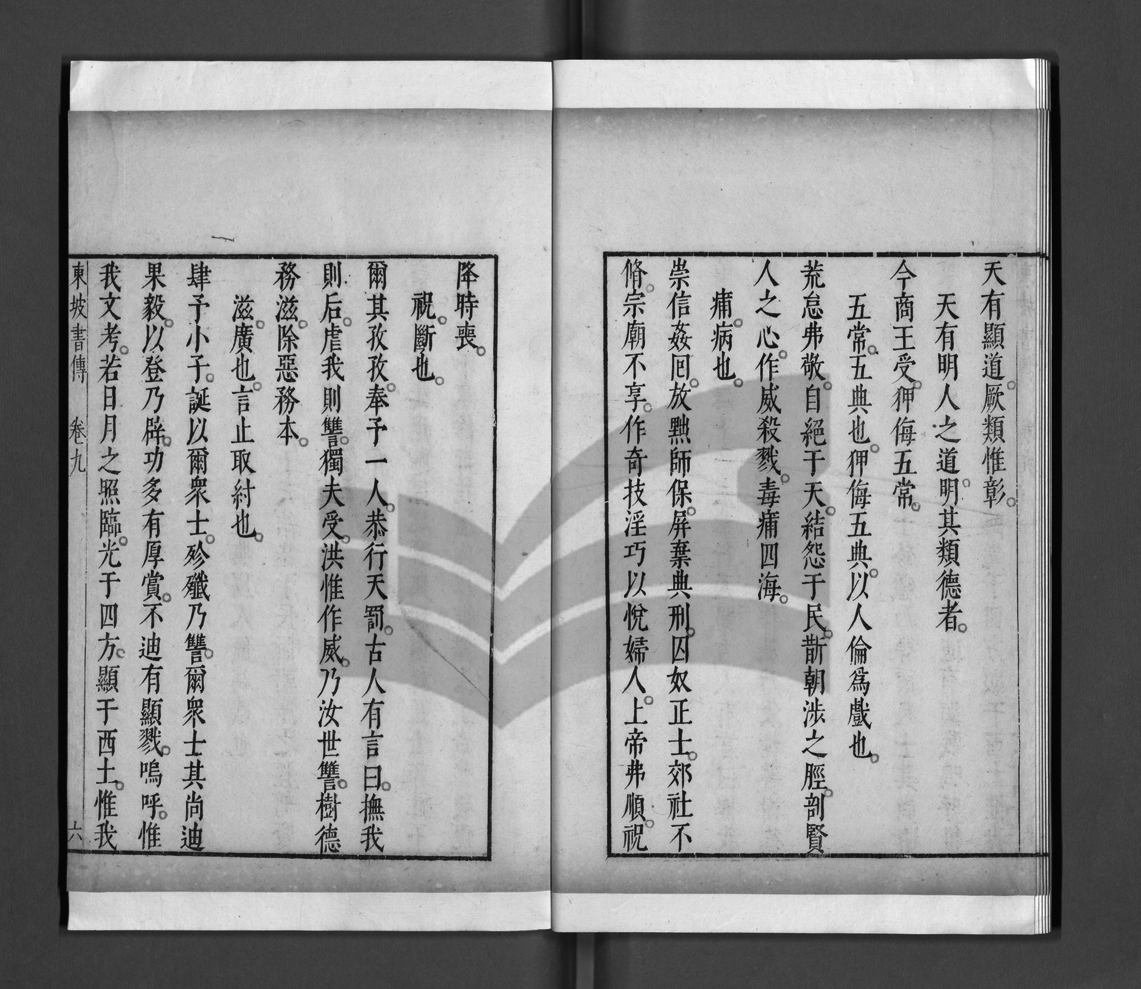 天有顯道。厥類惟彰。
天有明人之道。明其類德者。
今商王受。狎侮五常。
五常。五典也。狎侮五典。以人倫爲戲也。
荒怠弗敬。自絕于天。結怨于民。斮朝涉之脛。剖賢
人之心。作威殺戮。毒痡四海。
痡。病也。
崇信姦回。放黜師保。屏棄典刑。囚奴正士。郊社不
脩。宗廟不享。作奇技淫巧以悅婦人。上帝弗順。祝
降時喪。
祝。斷也。
爾其孜孜。奉予一人。恭行天罰。古人有言曰。撫我
則后。虐我則讐。獨夫受。洪惟作威。乃汝世讐。樹德
務滋。除惡務本。
滋。廣也。言止取紂也。
肆予小子。誕以爾衆士。殄殲乃讐。爾衆士其尚迪
果毅。以登乃辟。功多有厚賞。不迪有顯戮。嗚呼。惟
我文考。若日月之照臨。光于四方。顯于西土。惟我
東坡書傳 卷九 六